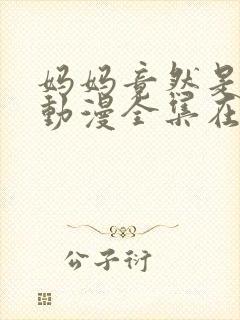 妈妈竟然是
動漫全集在
公子衍